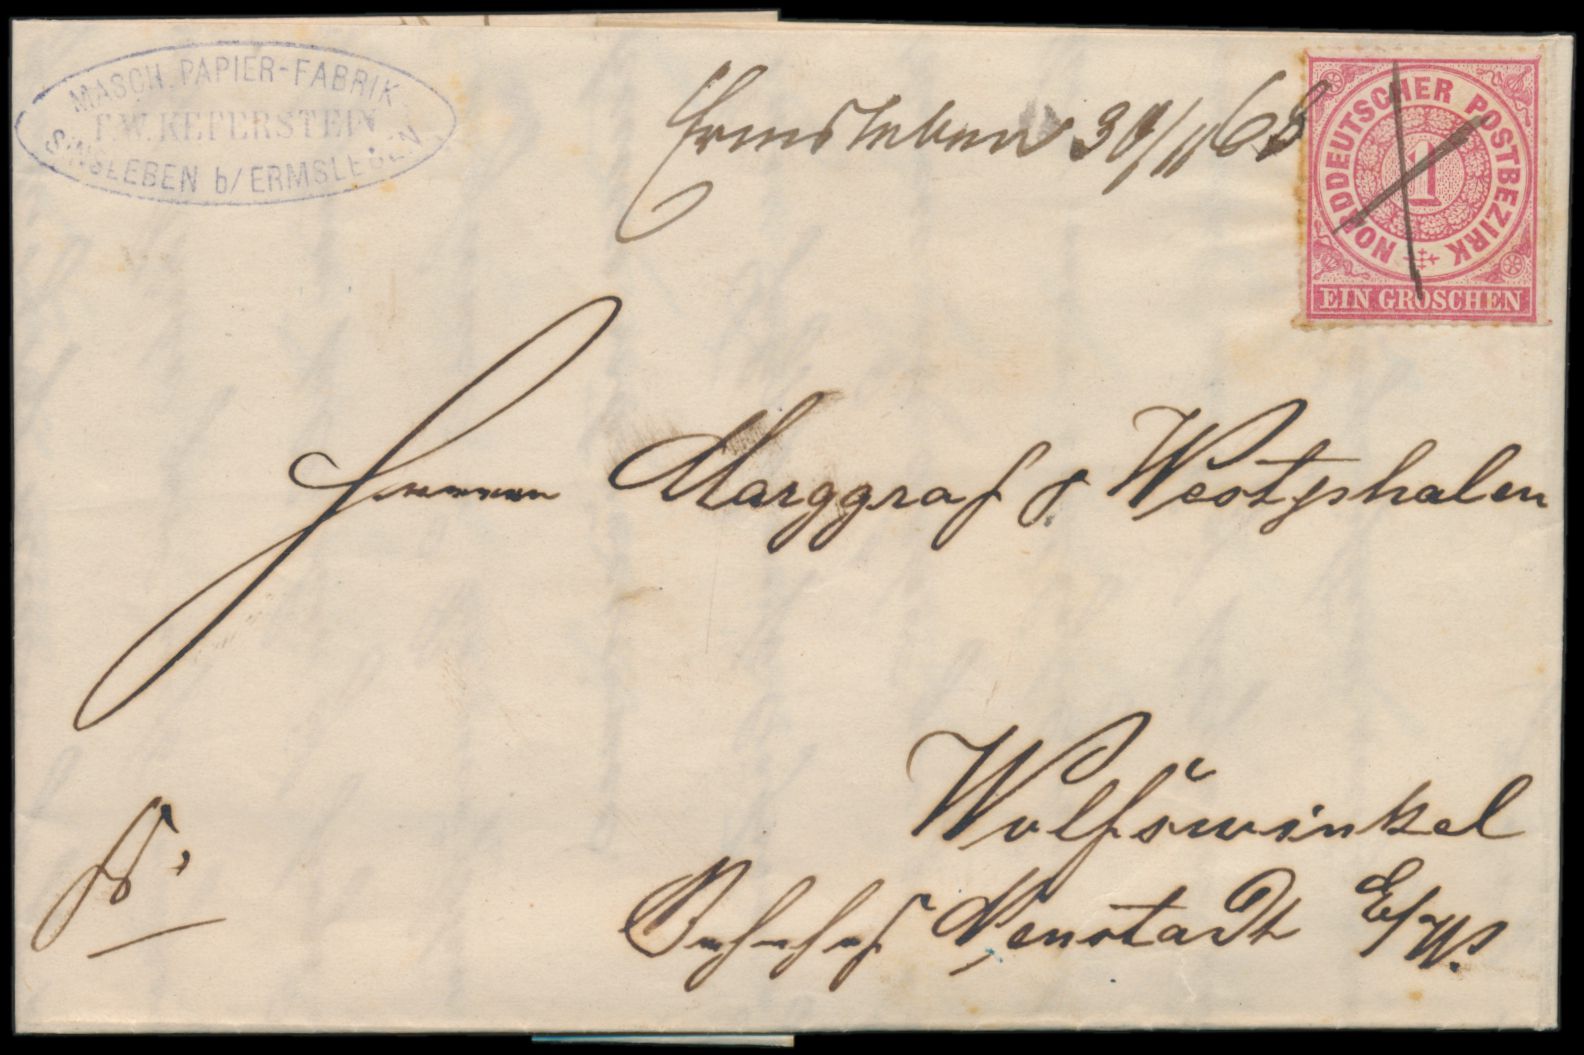 MASCH. PAPIER-FABRIK
F.W. KEFERSTEIN
SINSLEBEN b/ ERMSLEBEN
Ermsleben 30/11 68
NORDDEUTSCHER POSTBEZIRK
1
EIN GROSCHEN
Herren Marggraf & Westphalen
Wolfswinkel
Bahnhof Neustadt E/W.
fr.